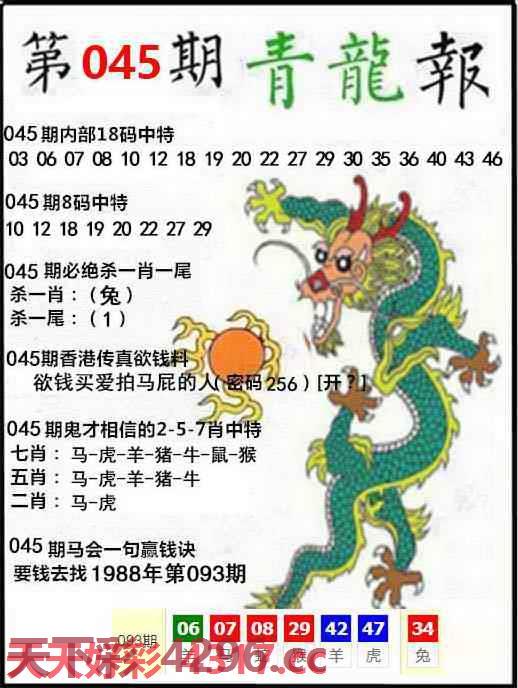 第045期 青龍報
045期内部18码中特
03 06 07 08 10 12 18 19 20 22 27 29 30 35 36 40 43 46
045期8码中特
10 12 18 19 20 22 27 29
045 期必绝杀一肖一尾
杀一肖：（兔）
杀一尾：（1）
045期香港传真欲钱料
欲钱买爱拍马屁的人(密码256）[开？]
045期鬼才相信的2-5-7肖中特
七肖：马-虎-羊-猪-牛-鼠-猴
五肖：马-虎-羊-猪-牛
二肖：马-虎
045期马会一句赢钱诀
要钱去找1988年第093期
093期 06 07 08 29 42 47 34
羊 马 蛇 猴 羊 虎 兔